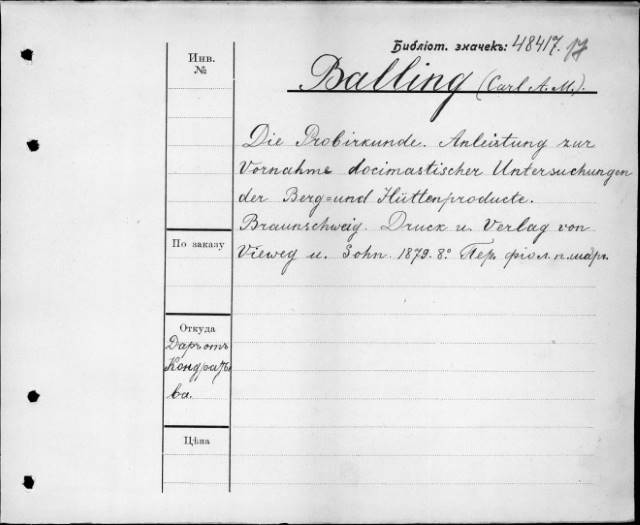 Библіот. значекъ: 48417. 17
Balling (Carl A. M.).
Инв.
№
Die Probirkunde. Anleitung zur
Vornahme docimastischer Untersuchungen
der Berg= und Hüttenproducte.
Braunschweig. Druck u. Verlag von
Vieweg u. Sohn. 1879. 8.° Пер.
По заказу
Откуда
Даръ отъ
Кондратье
ва.
Цѣна